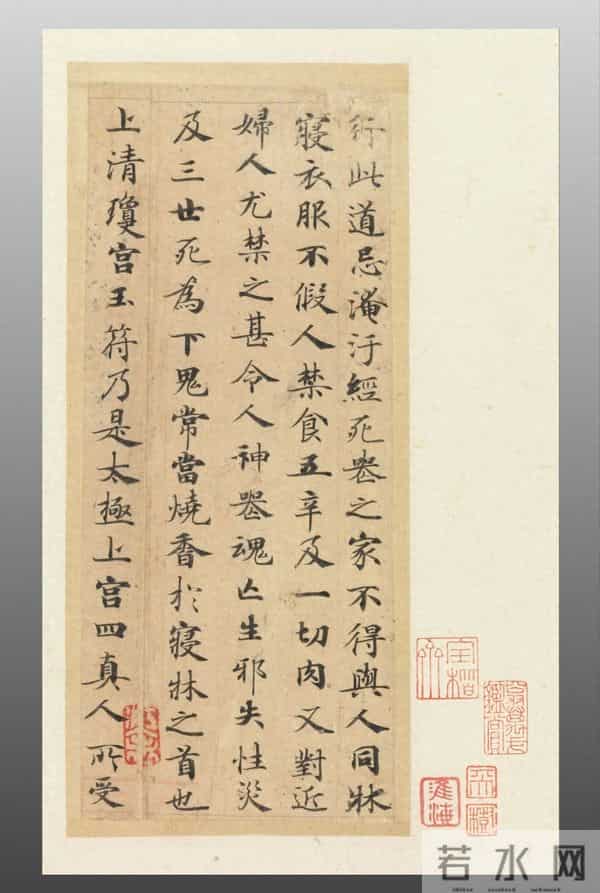 行此道忌淹汙經死喪之家不得與人同牀
寢衣服不假人禁食五辛及一切肉又對近
婦人尤禁之甚令人神喪魂亡生邪失性災
及三世死為下鬼常當燒香於寢牀之首也
上清瓊宮玉符乃是太極上宮四真人所受
若水网